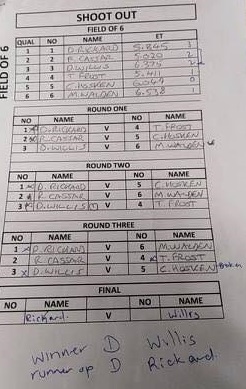 SHOOT OUT
FIELD OF 6
FIELD OF 6
QUAL NO NAME ET
1 1 D. RICKARD 5.845
2 2 R. CASSAR 2
3 3 D. WILLIS 6.375 2
4 4 T. FROST 5.411
5 5 C. HOSKEN 0
6 6 M. WALDEN 6.538 1
ROUND ONE
NO NAME NO NAME
1 D. RICKARD V 4 T. FROST
2 R. CASSAR V 5 C. HOSKEN
3 D. WILLIS V 6 M. WALDEN
ROUND TWO
NO NAME NO NAME
1 x D. RICKARD V 5 C. HOSKEN
2 R. CASSAR V 6 M. WALDEN
3 D. WILLIS V 4 T. FROST
ROUND THREE
NO NAME NO NAME
1 x D. RICKARD V 6 M. WALDEN
2 R. CASSAR V 4 x T. FROST
3 x D. WILLIS V 5 C. HOSKEN Broken
FINAL
NO NAME NO NAME
Rickard V Willis
Winner D Willis
runner up D Rickard